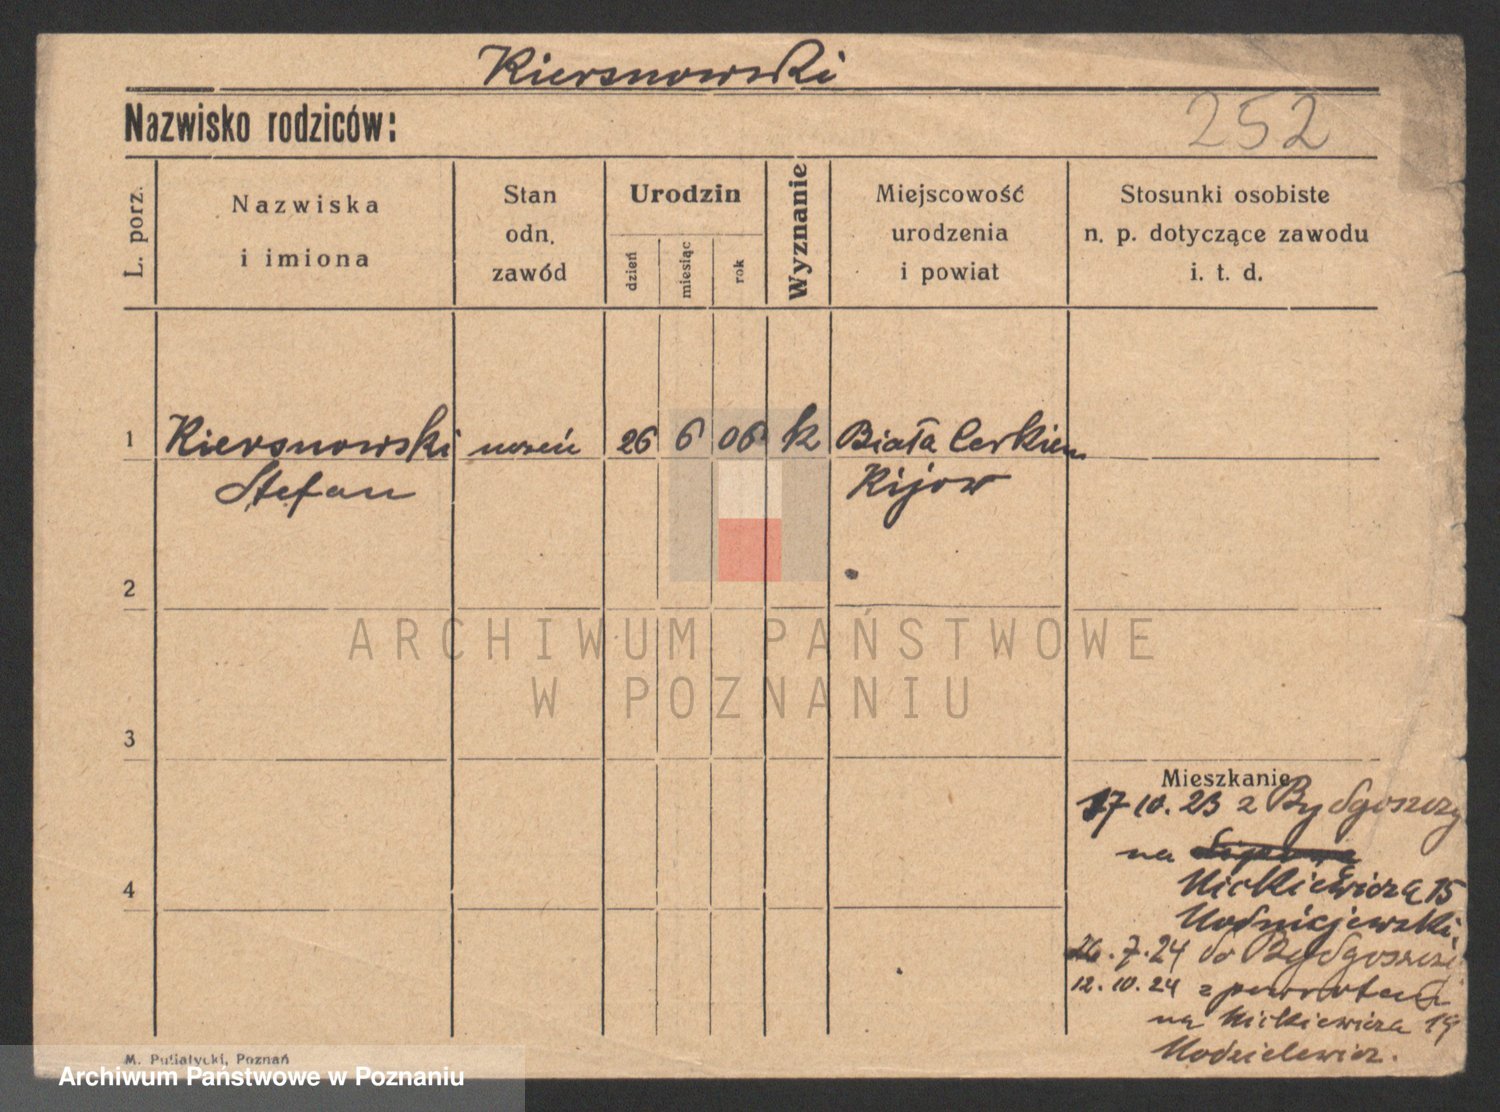 Kiersnowski
Nazwisko rodziców:
252
L. porz.
Nazwiska
i imiona
Stan
odn.
zawód
Urodzin
dzień
miesiąc
rok
Wyznanie
Miejscowość
urodzenia
i powiat
Stosunki osobiste
n. p. dotyczące zawodu
i. t. d.
1 Kiersnowski uczeń 26 6 06 k Biała Cerkiew
Stefan Kijow
2
ARCHIWUM PAŃSTWOWE
W POZNANIU
3
Mieszkanie
17 10. 23 z Bydgoszczy
na
Mickiewicza 15
26.7.24 do Bydgoszczy
12.10.24 z powrotem
na Mickiewicza 19
4
M. Putiatycki, Poznań
Archiwum Państwowe w Poznaniu